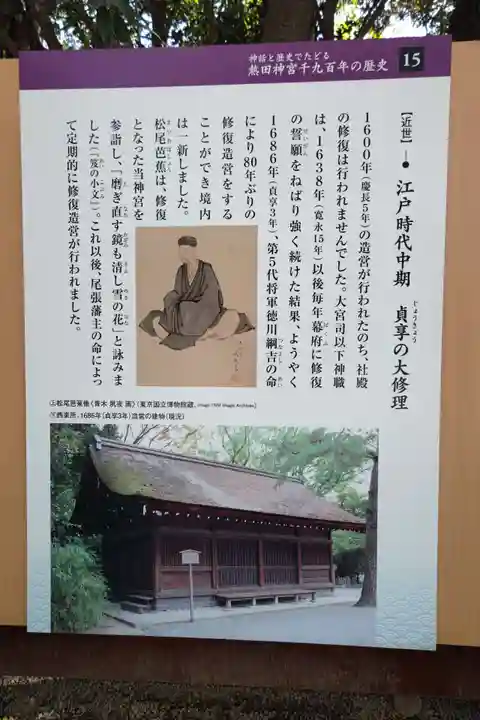 神話と歴史でたどる
熱田神宮千九百年の歴史
15
【近世】● 江戸時代中期 貞享の大修理
じょうきょう
1600年(慶長5年)の造営が行われたのち、社殿
の修復は行われませんでした。大宮司以下神職
は、1638年(寛永15年)以後毎年幕府に修復
の誓願をねばり強く続けた結果、ようやく
1686年(貞享3年)、第5代将軍徳川綱吉の命
により80年ぶりの
修復造営をする
ことができ境内
は一新しました。
松尾芭蕉は、修復
となった当神宮を
参詣し、「磨ぎ直す鏡も清し雪の花」と詠みま
した(『笈の小文』)。これ以後、尾張藩主の命によっ
て定期的に修復造営が行われました。
㊤松尾芭蕉像《青木夙夜 画》〔東京国立博物館蔵, Image:TNM Image Archives〕
㊦西楽所。1686年〔貞享3年〕造営の建物〔現況〕